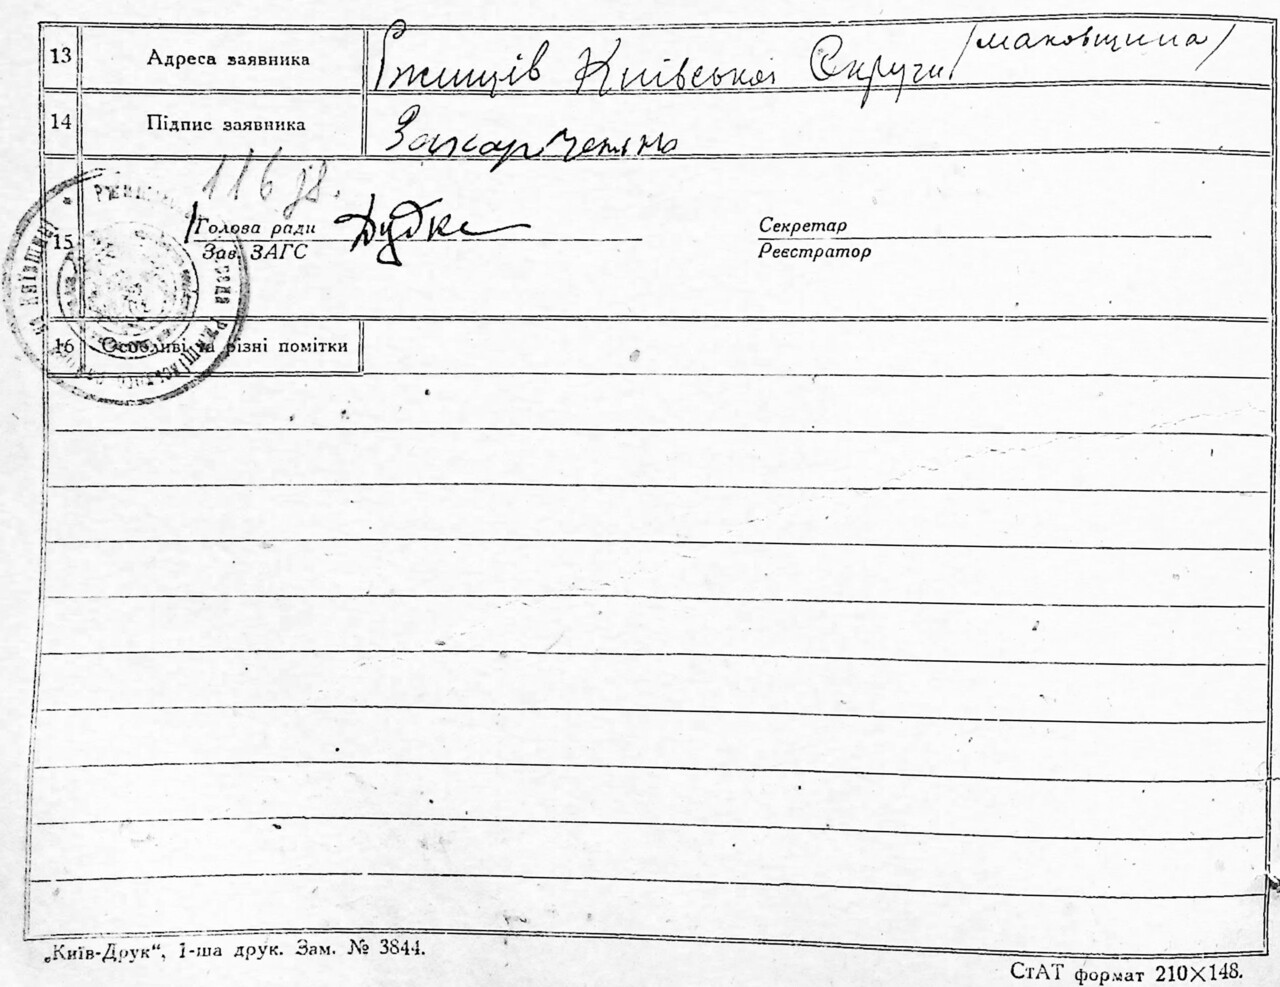 13 Адреса заявника Ржищів Київської Округи /маковщина/
14 Підпис заявника Захарченко
116
15 Голова ради Дудка Секретар
Зав. ЗАГС Реєстратор
16 Особливі та різні помітки
„Київ-Друк“, 1-ша друк. Зам. № 3844.
СтАТ формат 210×148.